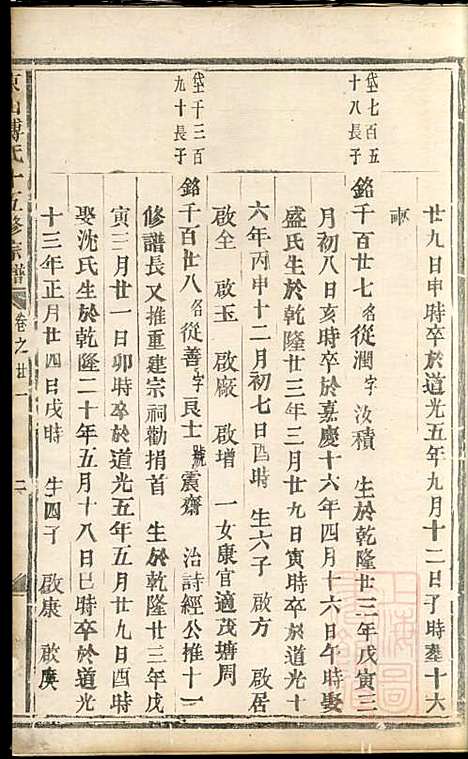 廿九日申時卒於道光五年九月十二日子時塟十六
啚
垈七百五
十八長子
銘千百廿七名從潤字汝積 生於乾隆廿三年戊寅三
月初八日亥時卒於嘉慶十六年四月十六日午時娶
盛氏生於乾隆廿三年三月廿九日寅時卒於道光十
六年丙申十二月初七日酉時 生六子 啟方 啟居
啟全 啟玉 啟廠 啟增 一女康官適茂塘周
垈千三百
九十長子
銘千百廿八名從善字良士號震齋 治詩經公推十一
修譜長又推重建宗祠勸捐首 生於乾隆廿三年戊
寅三月廿一日卯時卒於道光五年五月廿九日酉時
娶沈氏生於乾隆二十年五月十八日巳時卒於道光
十三年正月廿四日戌時 生四子 啟康 啟庚
東山傅氏十五修宗譜 卷之廿一 二